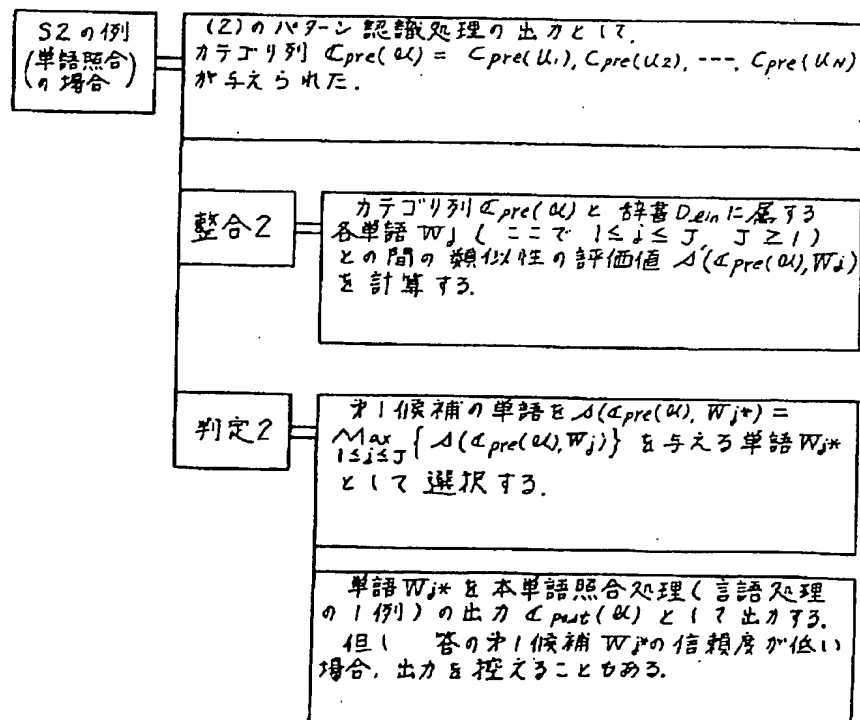 S2の例
(単語照合)
の場合
(2)のパターン認識処理の出力として、
カテゴリ列 ℂpre(𝕌) = Cpre(U1), Cpre(U2), ---, Cpre(UN)
が与えられた.
整合2
カテゴリ列 ℂpre(𝕌) と 辞書Dleinに属する
各単語 Wj ( ここで 1≤j≤J, J≥1 )
との間の類似性の評価値 s(ℂpre(𝕌), Wj)
を計算する.
判定2
第1候補の単語を s(ℂpre(𝕌), Wj*) =
Max { s(ℂpre(𝕌), Wj)} を与える単語Wj*
1≤j≤J
として選択する.
単語Wj*を本単語照合処理(言語処理
の1例)の出力 ℂpost(𝕌) として出力する.
但し 答の第1候補Wj*の信頼度が低い
場合、出力を控えることもある.